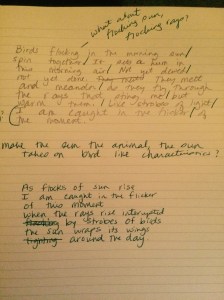 what about
flocking sun,
flocking rays,
Birds flocking in the morning sun/
spin together. It was a hum in
this morning air/ Not yet
not yet done. They meet
and meander/ do they fly through
the rays that
warm them. Like strobes of light/
I am caught in the flicker/ of
the moment.
make the sun the animal, the sun
takes on bird like characteristics?
As flocks of sun rise
I am caught in the flicker
of two moment
when the rays rise interrupted
by strobes of birds
the sun wraps its wings
around the day.